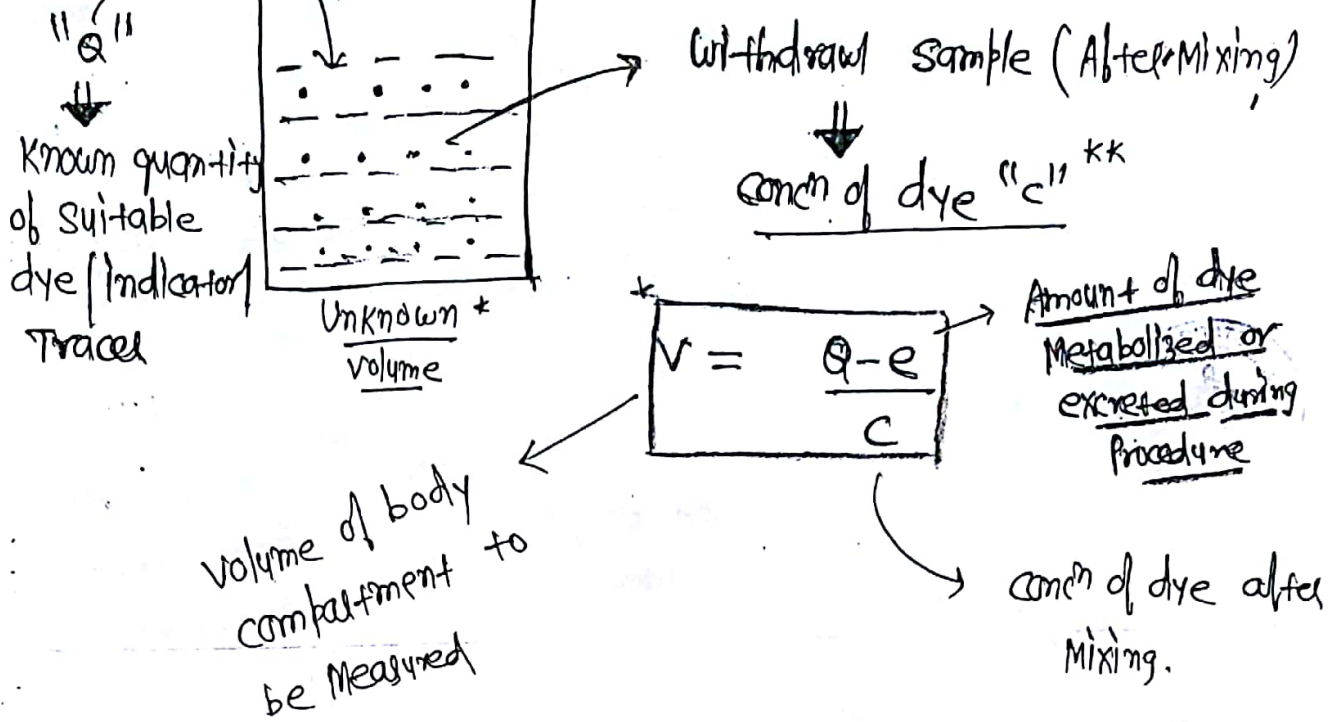 "Q"
Known quantity
of suitable
dye/Indicator/
Tracer
Unknown *
volume
Withdraw sample (After Mixing)
concn of dye "c" **
*
V = Q-e
C
Amount of dye
Metabolized or
excreted during
Procedure
volume of body
compartment to
be Measured
concn of dye after
Mixing.